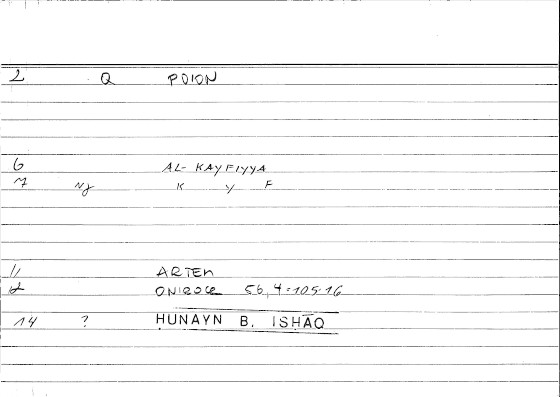 2 Q POION
6 AL-KAYFIYYA
7 Nf K Y F
11 ARTEM
12 ONIROCR 56,4=105.16
14 ? HUNAYN B. ISHĀQ